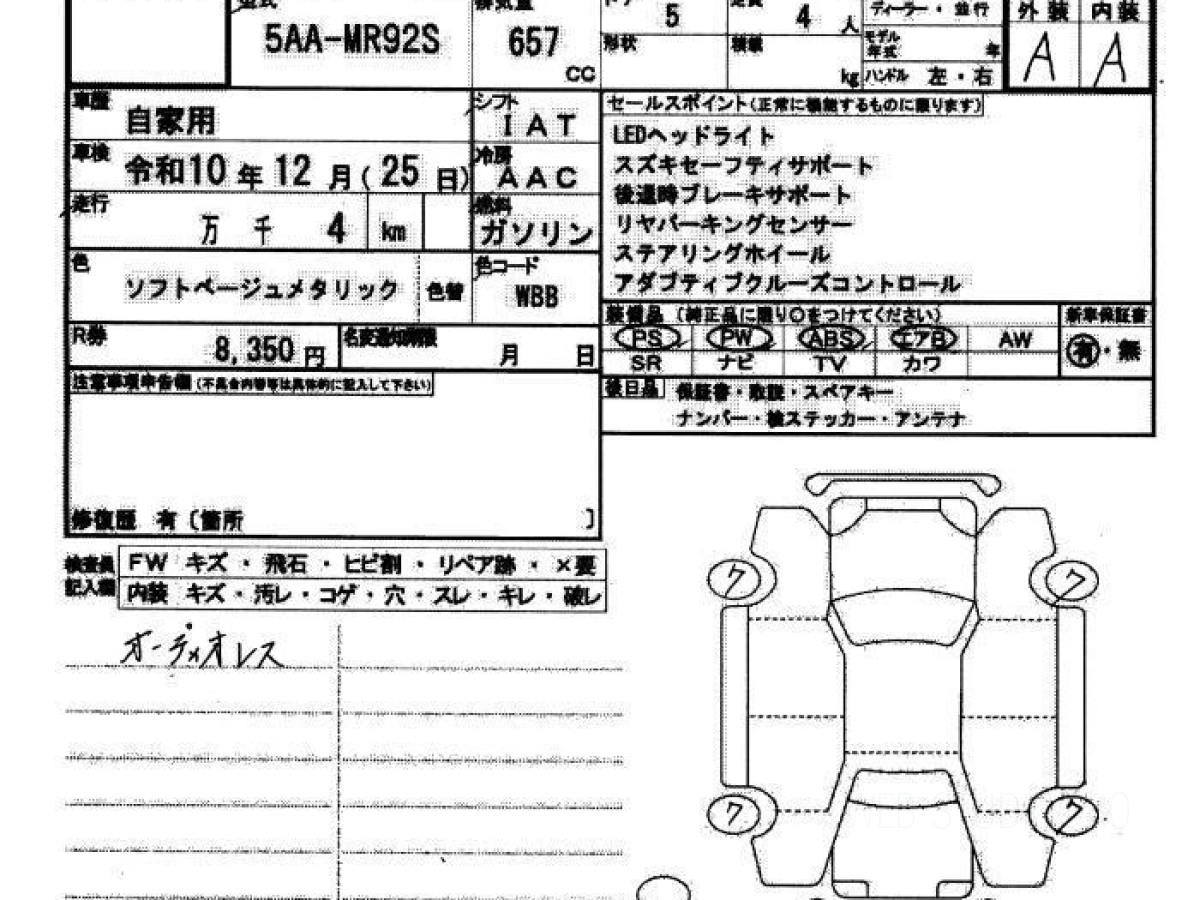 型式 排気量 ドア 定員
5AA-MR92S 657 cc 5 4 人
ディーラー・並行 外装 内装
形状 積載 kg
モデル年式 年
ハンドル 左・右
A A
車歴 自家用
シフト IAT
車検 令和10年12月(25日)
冷房 AAC
走行 万 千 4 km
燃料 ガソリン
色 ソフトベージュメタリック 色替
色コード WBB
R券 8,350円
名変通知期限 月 日
注意事項申告欄(不具合内容等は具体的に記入して下さい)
修復歴 有〔箇所 〕
セールスポイント(正常に機能するものに限ります)
LEDヘッドライト
スズキセーフティサポート
後退時ブレーキサポート
リヤパーキングセンサー
ステアリングホイール
アダプティブクルーズコントロール
装備品〔純正品に限り○をつけてください〕 新車保証書
PS PW ABS エアB AW 有・無
SR ナビ TV カワ
後日品 保証書・取説・スペアキー
ナンバー・検ステッカー・アンテナ
検査員記入欄
FW キズ・飛石・ヒビ割・リペア跡・×要
内装 キズ・汚レ・コゲ・穴・スレ・キレ・破レ
オーディオレス
ク ク
ク ク